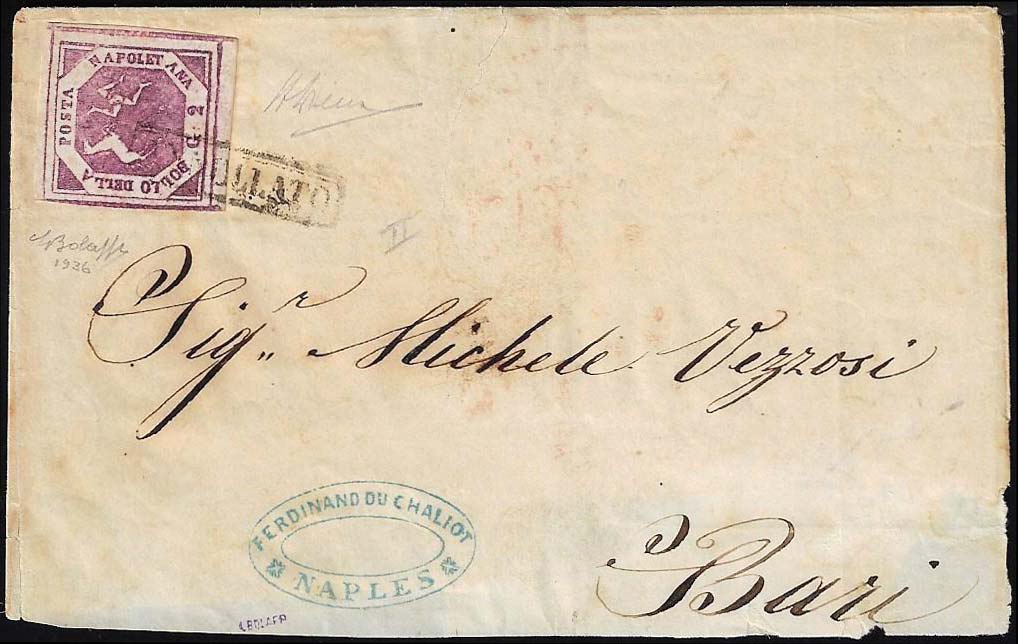 POSTA NAPOLETANA
BOLLO DELLA
G. 2
ULLATO
Bolaffi
1936
II
Sig.r Michele Vezzosi
FERDINAND DU CHALIOT
NAPLES
Bari
A.BOLAFFI